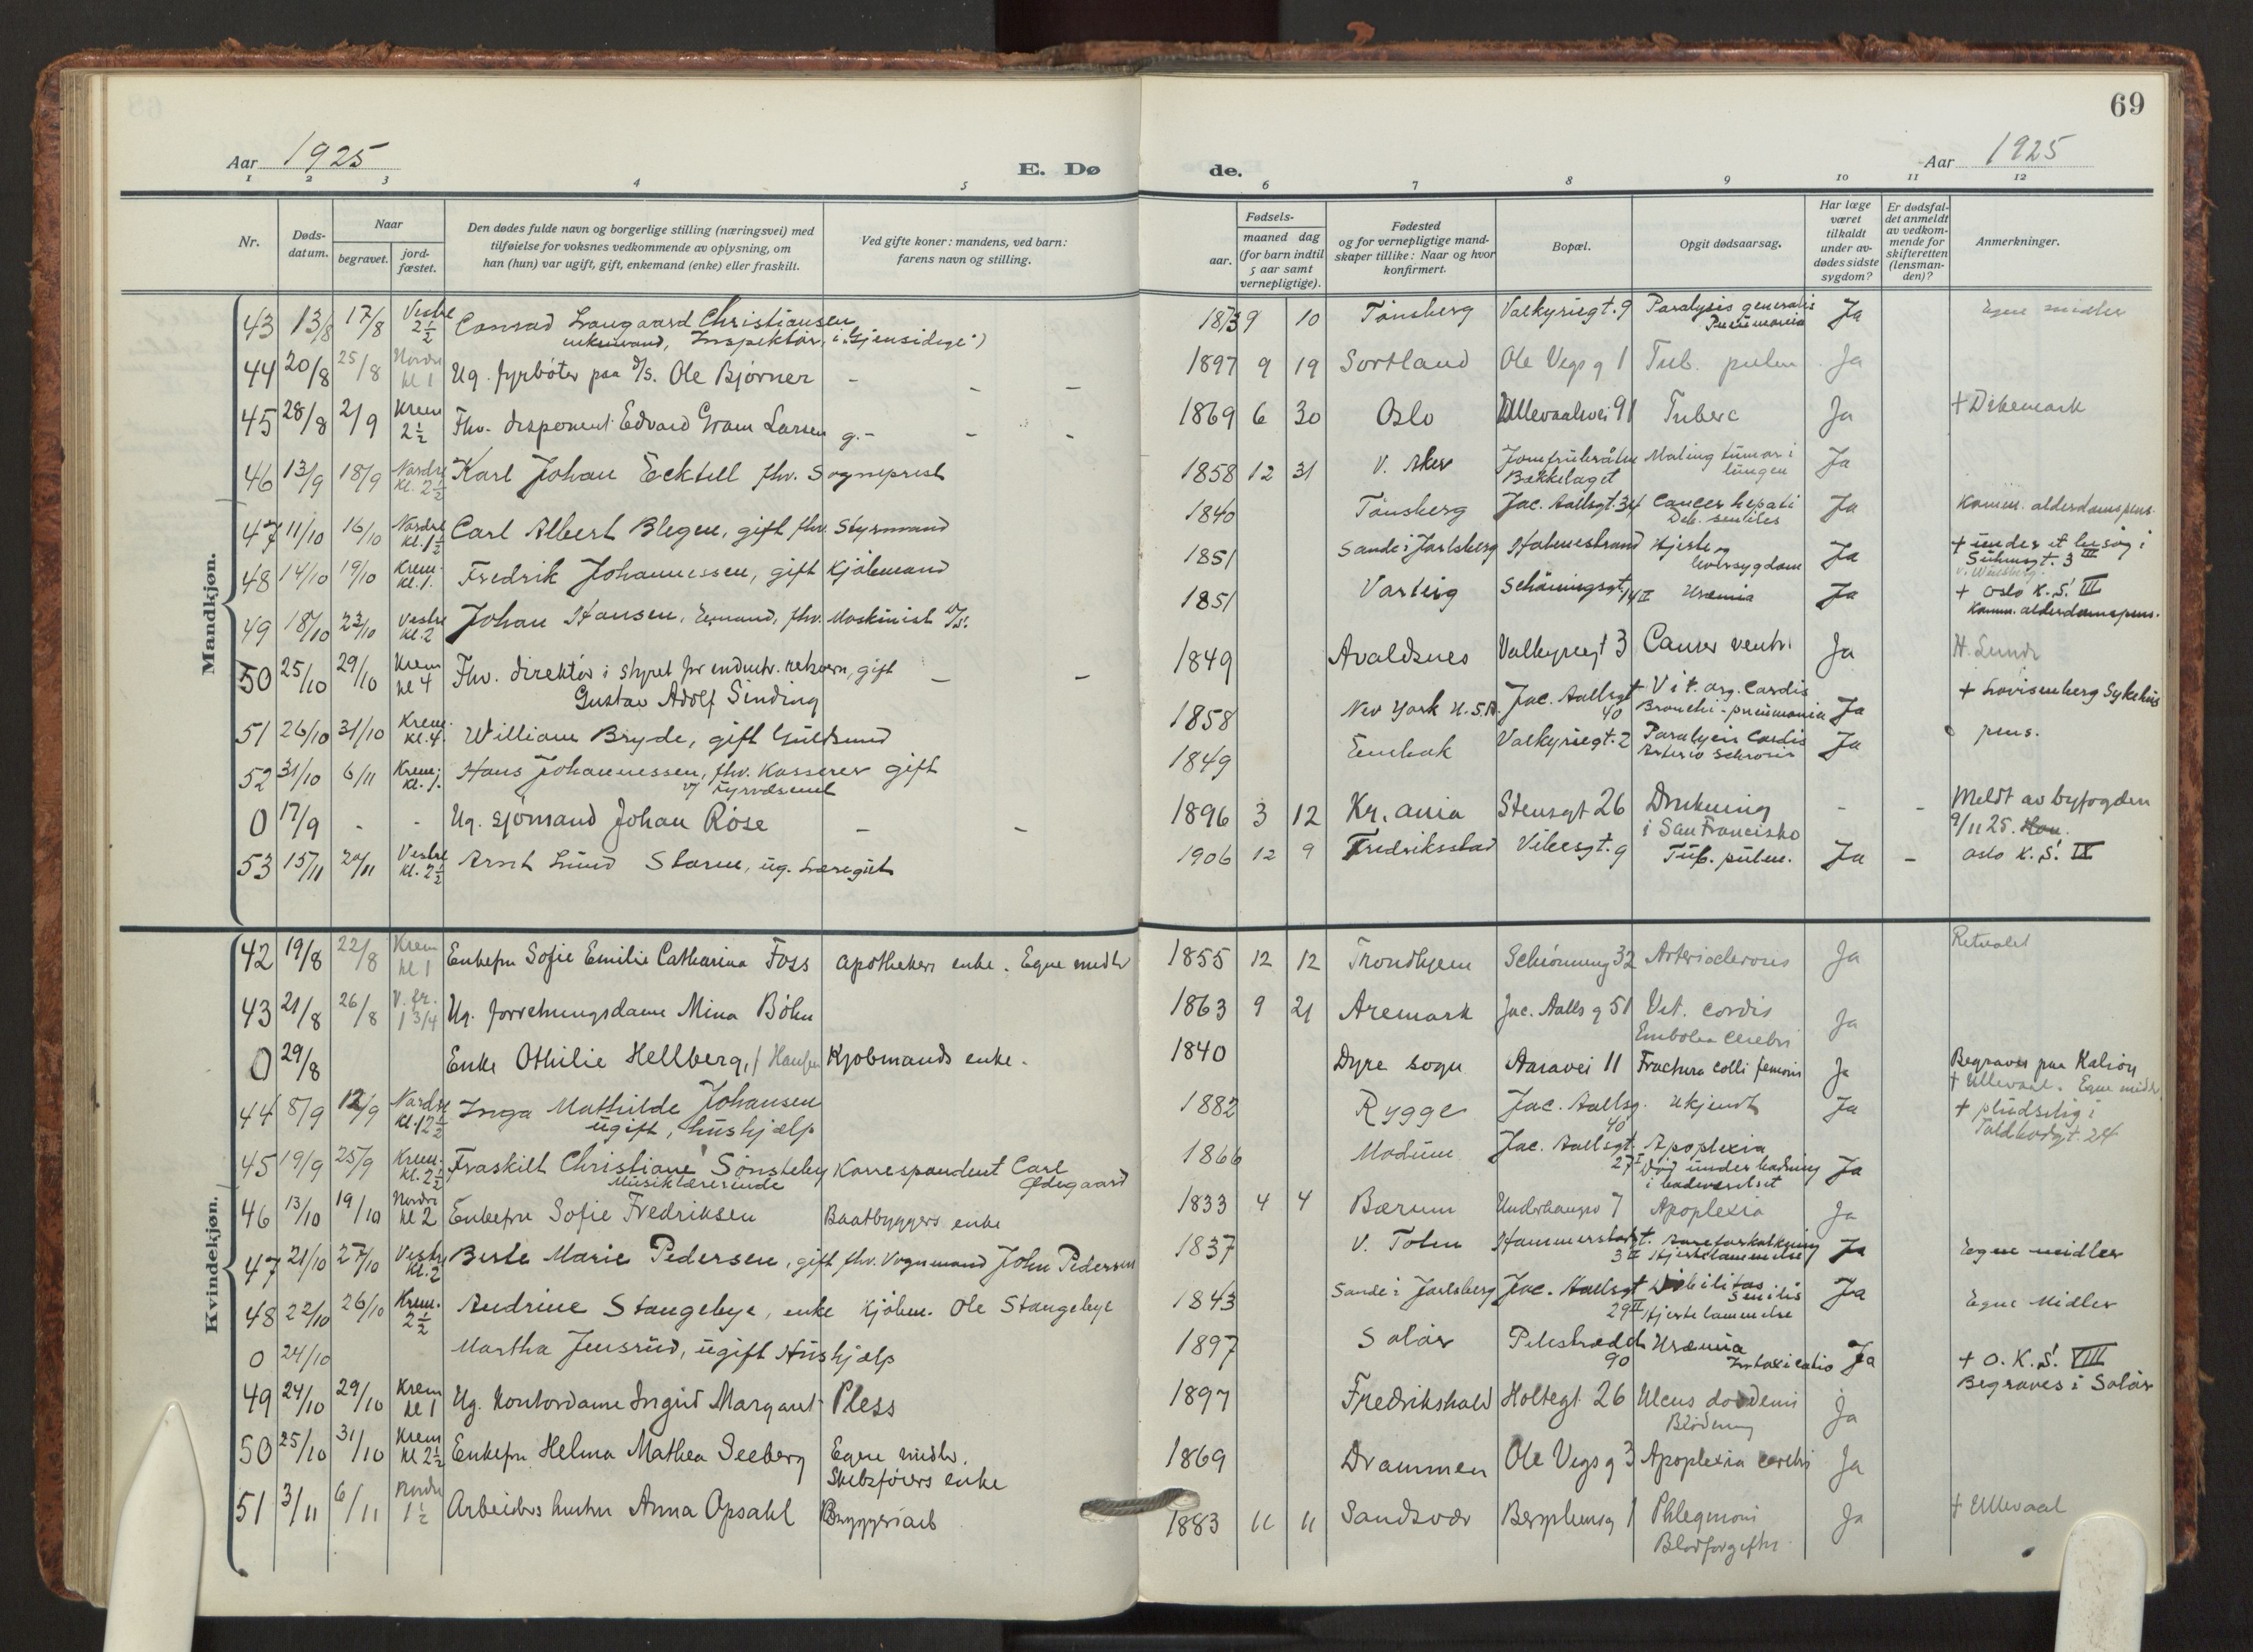 69
Aar 1925
E. Dø
de.
Aar 1925
1 2 3 4 5 6 7 8 9 10 11 12
Nr.
Døds-
datum.
Naar
begravet.
jord-
fæstet.
Den dødes fulde navn og borgerlige stilling (næringsvei) med
tilføielse for voksnes vedkommende av oplysning, om
han (hun) var ugift, gift, enkemand (enke) eller fraskilt.
Ved gifte koner: mandens, ved barn:
farens navn og stilling.
Fødsels-
aar.
maaned dag
(for barn indtil
5 aar samt
vernepligtige).
Fødested
og for vernepligtige mand-
skaper tillike: Naar og hvor
konfirmert.
Bopæl.
Opgit dødsaarsag.
Har læge
været
tilkaldt
under av-
dødes sidste
sygdom?
Er dødsfal-
det anmeldt
av vedkom-
mende for
skifteretten
(lensman-
den)?
Anmerkninger.
Mandkjøn.
43 13/8 17/8 Vestre 2½ Conrad Langaard Christiansen 1873 9 10 Tönsberg Valkyriegt. 9 Paralysis generalis Ja Egne midler
enkemand, Inspektör i "Gjensidige") Pneumonia
44 20/8 25/8 Nordre kl 1 Ug. fyrböter paa D/S. Ole Bjørner - - - 1897 9 19 Sortland Ole Vigs g 1 Tub. pulm Ja
45 28/8 2/9 Krem 2½ Fhv. disponent Edvard Gram Larsen g. - - - 1869 6 30 Oslo Ullevaalsvei 91 Tuberc Ja + Dikemark
46 13/9 18/9 Nordre kl. 2½ Karl Johan Ecktell fhv. Sogneprest 1858 12 31 V. Aker Bækkelaget Maling tumor i lungen Ja
47 11/10 16/10 Nordre kl. 1½ Carl Albert Blegen, gift fhv. Styrmand 1840 Tönsberg Jac. Aallsgt. 34 Cancer hepati Ja Komm. alderdomspens.
Deb. senilis
48 14/10 19/10 Krem. kl. 1. Fredrik Johannessen, gift Kjöbmand 1851 Sande i Jarlsberg Holmestrand Hjerte og leversygdom Ja + under et besög i
49 18/10 23/10 Vestre kl. 2 Johan Hansen, Emand, fhv. Maskinist 1851 Varteig Schöningsgt. 14 II Uræmia Ja + Oslo K. S. III
Komm. alderdomspens.
50 25/10 29/10 Krem kl 4 Fhv. direktör i styret for industr. retsvern, gift - - 1849 Avaldsnes Valkyriegt 3 Cancer ventr. Ja H. Lunde
Gustav Adolf Sinding
51 26/10 31/10 Krem. kl. 4. William Bryde, gift Guldsmed 1858 New York U.S.A. Jac. Aallsgt 40 Vit. org. Cordis Ja + Lovisenberg Sykehus
Bronchi-pneumonia
52 31/10 6/11 Krem. kl. 1. Hans Johannessen, fhv. Kasserer gift 1849 Embak Valkyriegt. 2 Paralysis Cordis Ja pens.
v/ Fyrvæsenet
0 17/9 - - Ug. sjömand Johan Röse - - 1896 3 12 Kr.ania Stensgt 26 Drukning - - Meldt av byfogden
i San Francisko 9/11 25.
53 15/11 20/11 Vestre kl. 2½ Arnt Lund Storm, ug. Læregut 1906 12 9 Fredriksstad Vibesgt. 9 Tub. pulm. Ja - Oslo K. S. IX
Kvindekjøn.
42 19/8 22/8 Krem kl 1 Enkefru Sofie Emilie Catharina Foss Apothekers enke. Egne midler 1855 12 12 Trondhjem Schiönning 32 Arteriosclerosis Ja
43 21/8 26/8 1 3/4 Ug. forretningsdame Mina Böhn 1863 9 21 Aremark Jac. Aalls g 51 Vit. cordis Ja
Embolia cerebri
0 29/8 Enke Othilie Hellberg, f Hansen Kjøbmands enke. 1840 Dyre sogn Aasavei 11 Fractura colli femoris Ja Begraves paa
+ Ullevaal. Egne midler
44 8/9 12/9 Nordre kl. 12½ Inga Mathilde Johansen 1882 Rygge Jac. Aallsg. 40 Ukjendt Ja + pludselig i
ugift, hushjælp Toldbodgt. 24
45 19/9 25/9 Krem. kl. 2½ Fraskilt Christiane Sönsteby Korrespondent Carl Ødegaard 1866 Modum Jac. Aallsgt. 27 I Apoplexia Ja
Musiklærerinde Död under badning
46 13/10 19/10 Nordre kl 2 Enkefru Sofie Fredriksen Baatbyggers enke 1833 4 4 Bærum Underhaugsv 7 Apoplexia Ja
47 21/10 27/10 Vestre kl. 2 Berte Marie Pedersen, gift fhv. Vognmand John Pedersen 1837 V. Toten Hammerstadgt. 3 II Aareforkalkning Ja Egne midler
Hjertelammelse
48 22/10 26/10 Krem. 2½ Andrine Stangebye, enke Kjöbm. Ole Stangebye 1843 Sande i Jarlsberg Jac. Aallsgt 29 II Debilitas Senilis Ja Egne Midler
Hjertelammelse
0 24/10 Martha Jensrud, ugift Hushjælp 1897 Solör Pilestrædet 90 Uræmia Ja + O. K. S. VIII
Intoxicatio Begraves i Solör
49 24/10 29/10 Krem kl 1 Ug. Kontordame Ingrid Margaret Pless 1897 Fredrikshald Holtegt 26 Ulcus doodeni Ja
Blödning
50 25/10 31/10 Krem kl 2½ Enkefru Helma Mathea Seeberg Egne midler. 1869 Drammen Ole Vigs g 3 Apoplexia cerebri Ja
Skibsförers enke
51 3/11 6/11 Nordre 1½ Arbeiders hustru Anna Opsahl Bryggeriarb 1883 11 11 Sandsvær 1 Phlegmoni Ja + Ullevaal
Blodforgiftn